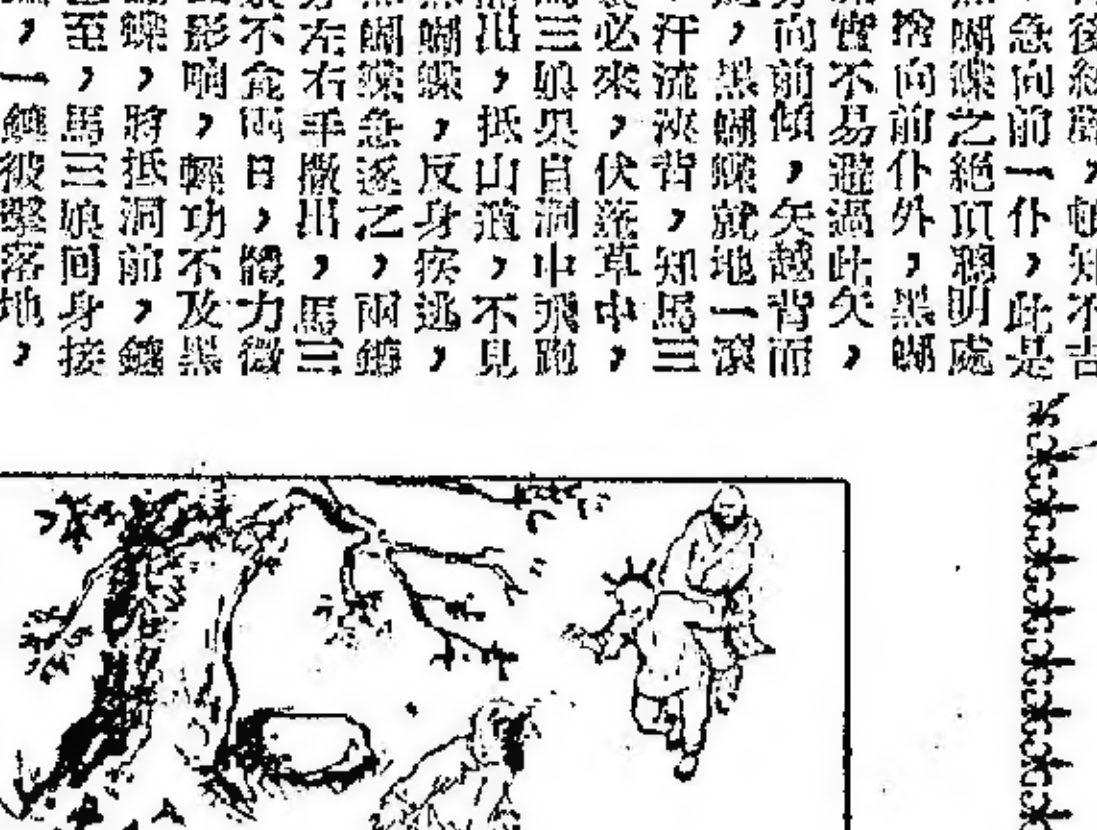 後，頓知不吉
急向前一仆，此是
蝴蝶之絕頂聰明處
捨向前仆外，黑蝴
實不易避過此矢，
向前傾，矢越背而
，黑蝴蝶就地一滾
汗流浹背，知馬三
必來，伏荒草中，
三娘果自洞中飛跑
出，抵山道，不見
蝴蝶，反身疾逃，
蝴蝶急逐之，兩鏢
左右手撒出，馬三
不食兩日，體力微
影响，輕功不及黑
蝶，將抵洞前，鏢
至，馬三娘回身接
，一鏢被擊落地，